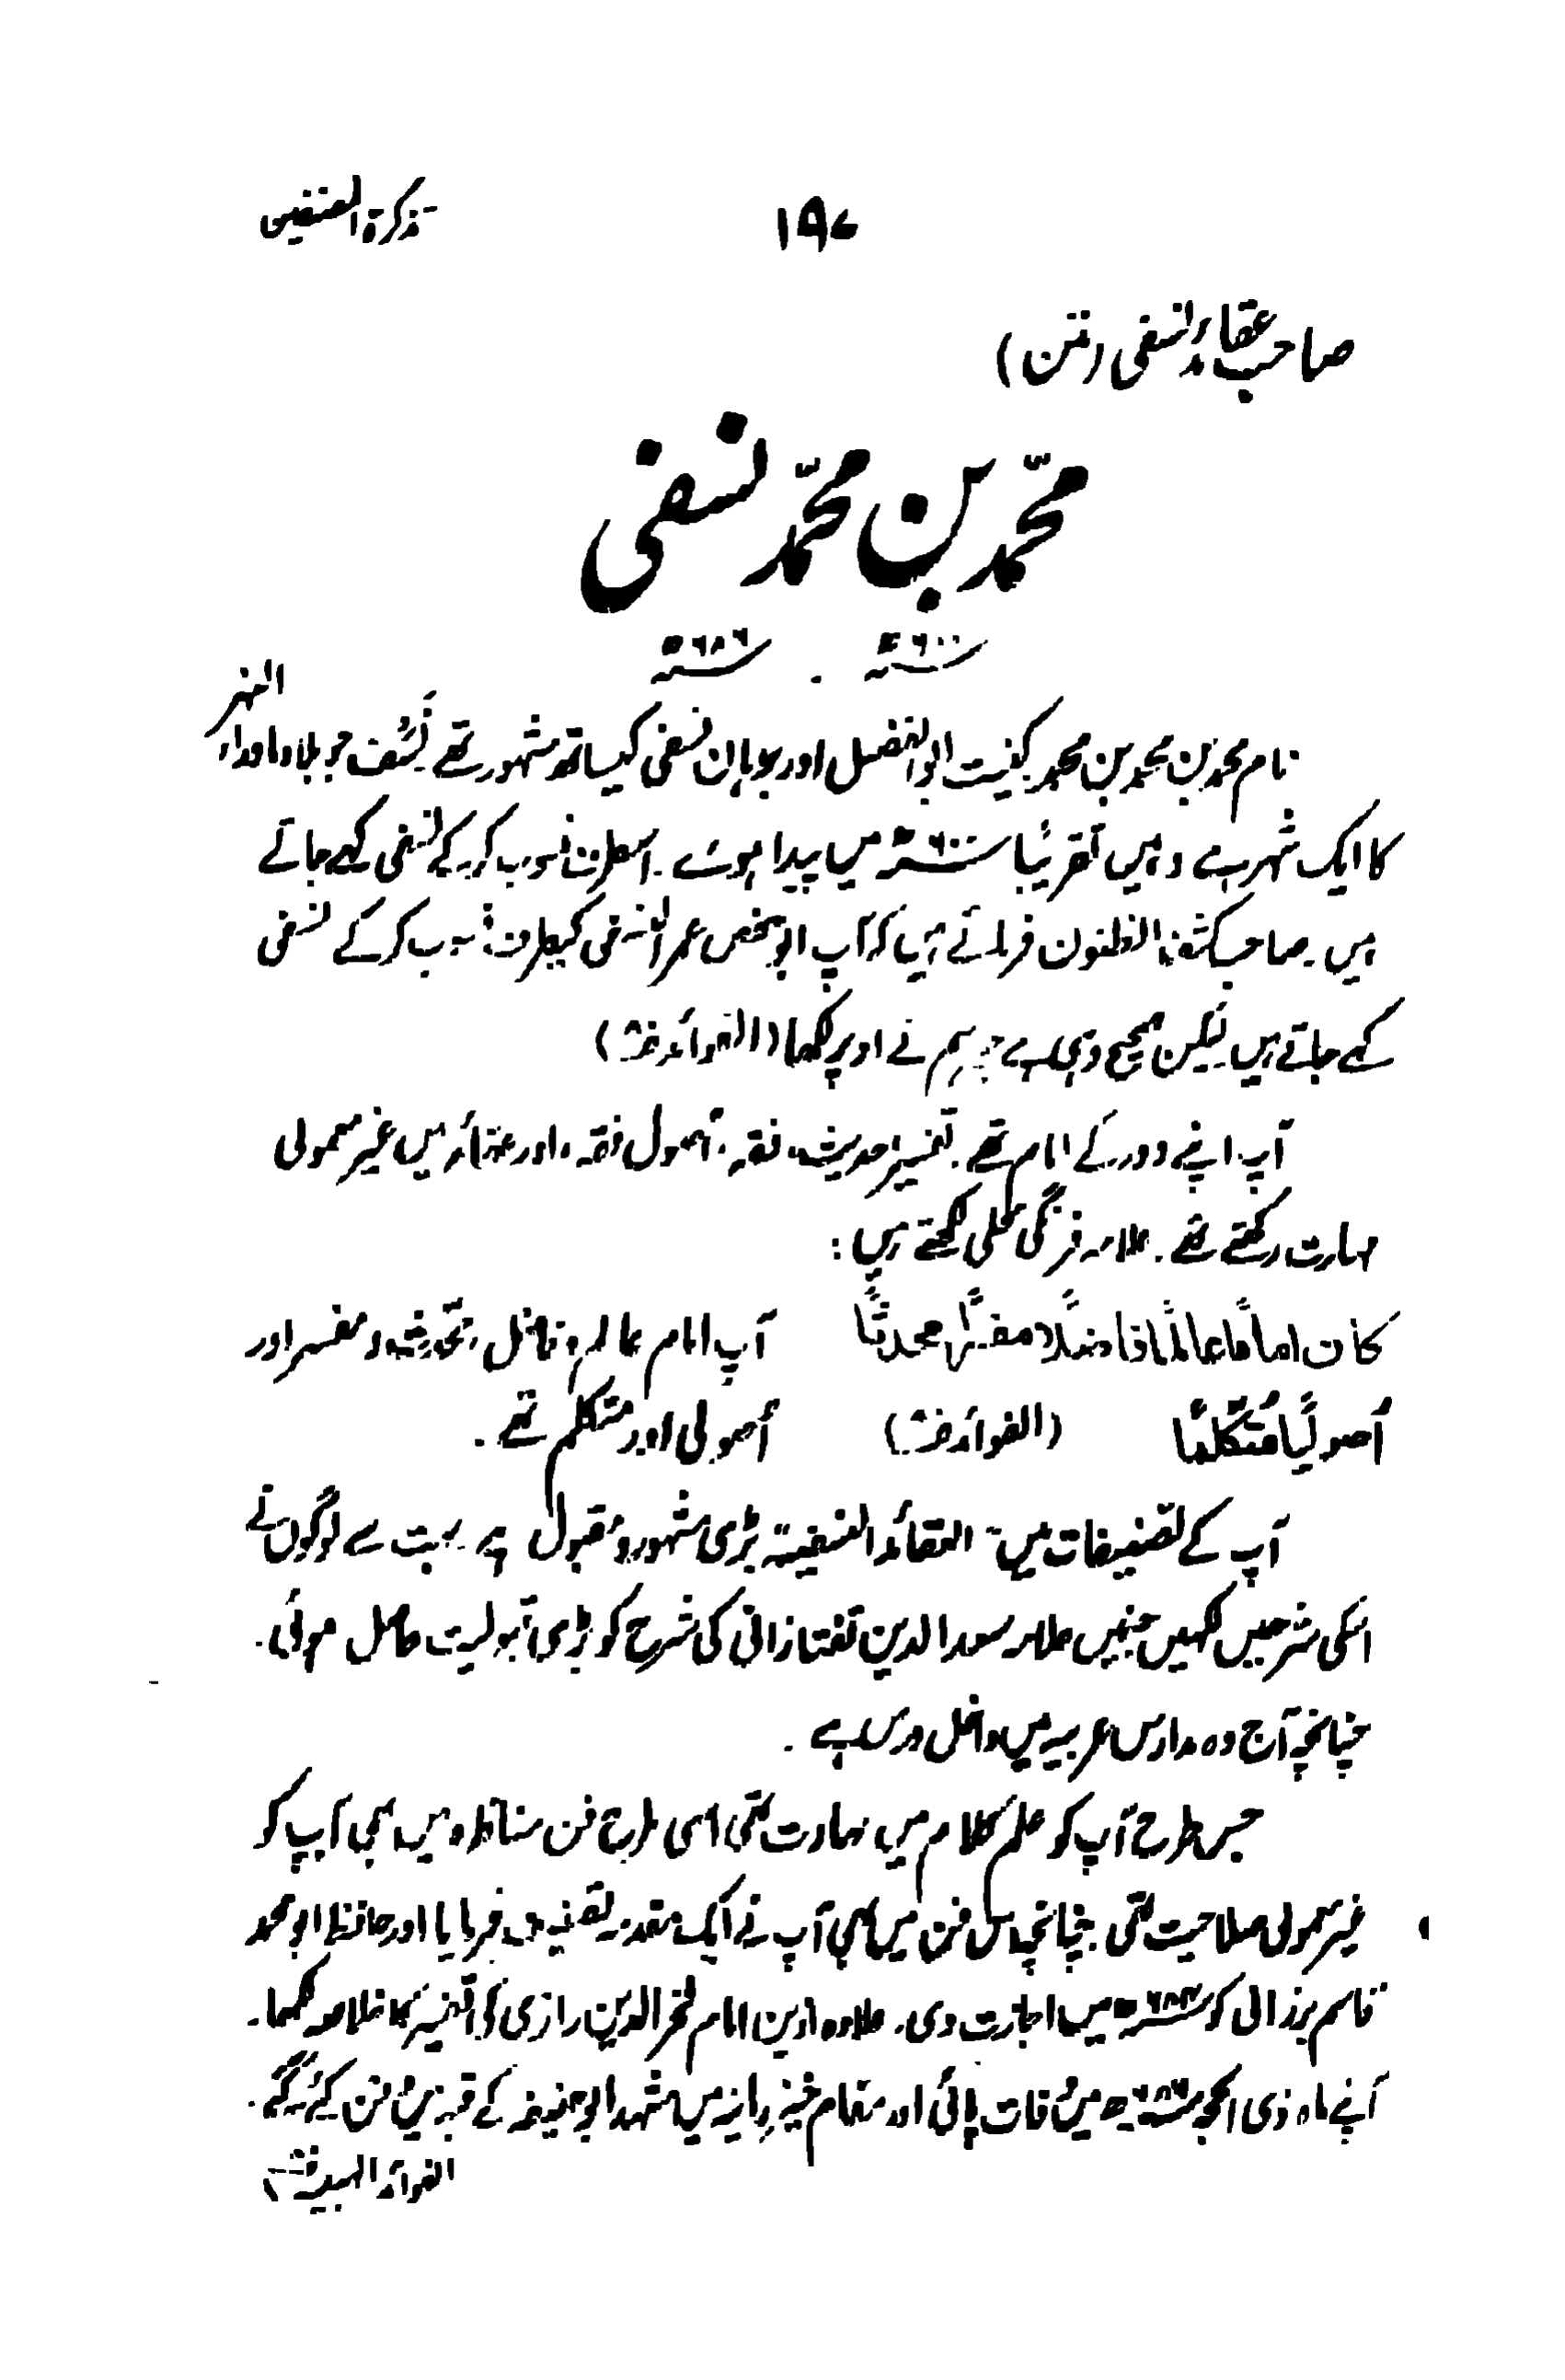 تذکرۃ المصنفین
۱۹۷
صاحب عقائد نسفی (متن)
محمّد بن محمّد نسفی
۶۰۰ھ . ۶۸۶ھ
نام محمد بن محمد بن محمد کنیت ابو الفضل اور برہان نسفی کیساتھ مشہور تھے نَسَف جو بلاد ماوراء النہر
کا ایک شہر ہے وہیں تقریبًا ۶۰۰ھ میں پیدا ہوئے۔ اسطرف منسوب کر کے نسفی کہے جاتے
ہیں۔ صاحب کشف الظنون فرماتے ہیں کہ آپ ابو حفص عمر النسفی کیطرف منسوب کر کے نسفی
کہے جاتے ہیں لیکن صحیح وہی ہے جو ہم نے اوپر لکھا (الفوائد)
آپ اپنے دور کے امام تھے۔ تفسیر، حدیث، فقہ، اصول فقہ، اور عقائد میں غیر معمولی
مہارت رکھتے تھے۔ علامہ فرنگی محلی لکھتے ہیں:
کان امامًا عالمًا فاضلًا مفسرًا محدثًا آپ امام عالم و فاضل، محدث و مفسر اور
اُصولیًا مُتکلمًا (الفوائد) اُصولی اور متکلم تھے۔
آپ کے تصنیفات میں العقائد النسفیۃ بڑی مشہور و مقبول ہے۔ بہت سے لوگوں نے
اسکی شرحیں لکھیں جنمیں علامہ سعد الدین تفتازانی کی شرح کو بڑی قبولیت حاصل ہوئی۔
چنانچہ آج وہ مدارس عربیہ میں داخل درس ہے۔
جس طرح آپ کو علم کلام میں مہارت تھی اسی طرح فن مناظرہ میں بھی آپ کو
غیر معمولی صلاحیت تھی۔ چنانچہ اس فن میں بھی آپ نے ایک مقدمہ تصنیف فرمایا اور حافظ ابو محمد
قاسم برزالی کو میں اجازت دی۔ علاوہ ازین امام فخر الدین رازی کی تفسیر کا خلاصہ لکھا۔
آپنے ماہ ذی الحجہ میں وفات پائی اور مقام خیزرانیہ میں مشہد ابو حنیفہ کے قبہ میں دفن کئے گئے۔
الفوائد البہیہ)